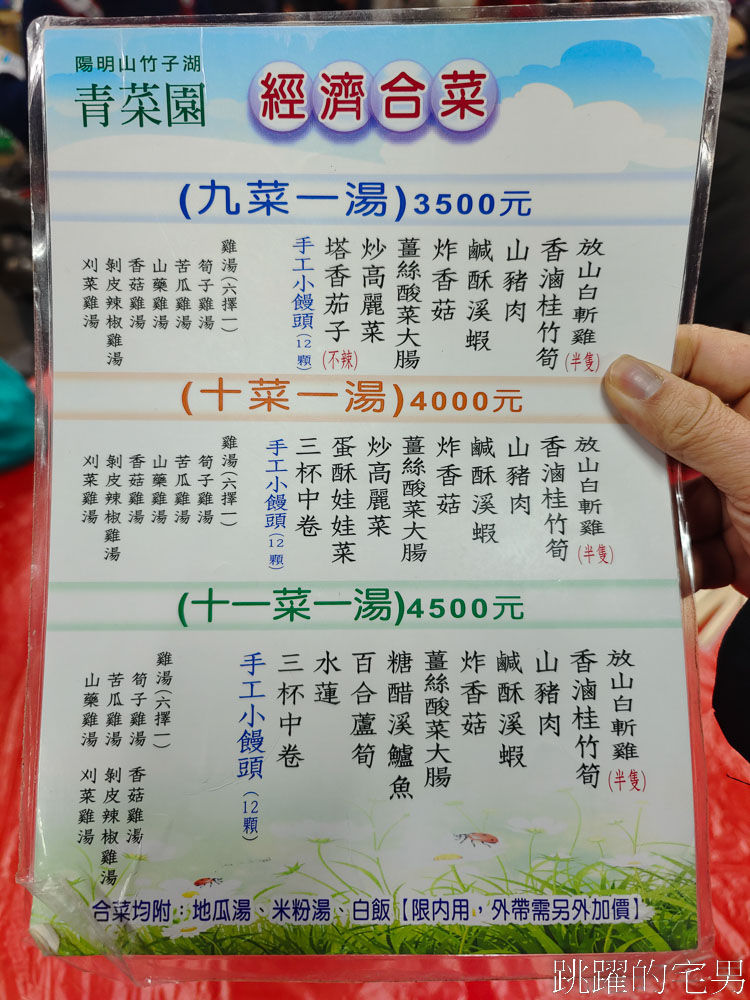 陽明山竹子湖
青菜園
經濟合菜
(九菜一湯)3500元
放山白斬雞(半隻)
香滷桂竹筍
山豬肉
鹹酥溪蝦
炸香菇
薑絲酸菜大腸
炒高麗菜
塔香茄子(不辣)
手工小饅頭(12顆)
雞湯(六擇一)
筍子雞湯
苦瓜雞湯
山藥雞湯
香菇雞湯
剝皮辣椒雞湯
刈菜雞湯
(十菜一湯)4000元
放山白斬雞(半隻)
香滷桂竹筍
山豬肉
鹹酥溪蝦
炸香菇
薑絲酸菜大腸
炒高麗菜
蛋酥娃娃菜
三杯中卷
手工小饅頭(12顆)
雞湯(六擇一)
筍子雞湯
苦瓜雞湯
山藥雞湯
香菇雞湯
剝皮辣椒雞湯
刈菜雞湯
(十一菜一湯)4500元
放山白斬雞(半隻)
香滷桂竹筍
山豬肉
鹹酥溪蝦
炸香菇
薑絲酸菜大腸
糖醋溪鱸魚
百合蘆筍
水蓮
三杯中卷
手工小饅頭(12顆)
雞湯(六擇一)
筍子雞湯
苦瓜雞湯
山藥雞湯
香菇雞湯
剝皮辣椒雞湯
刈菜雞湯
合菜均附：地瓜湯、米粉湯、白飯【限內用，外帶需另外加價】
跳躍的宅男